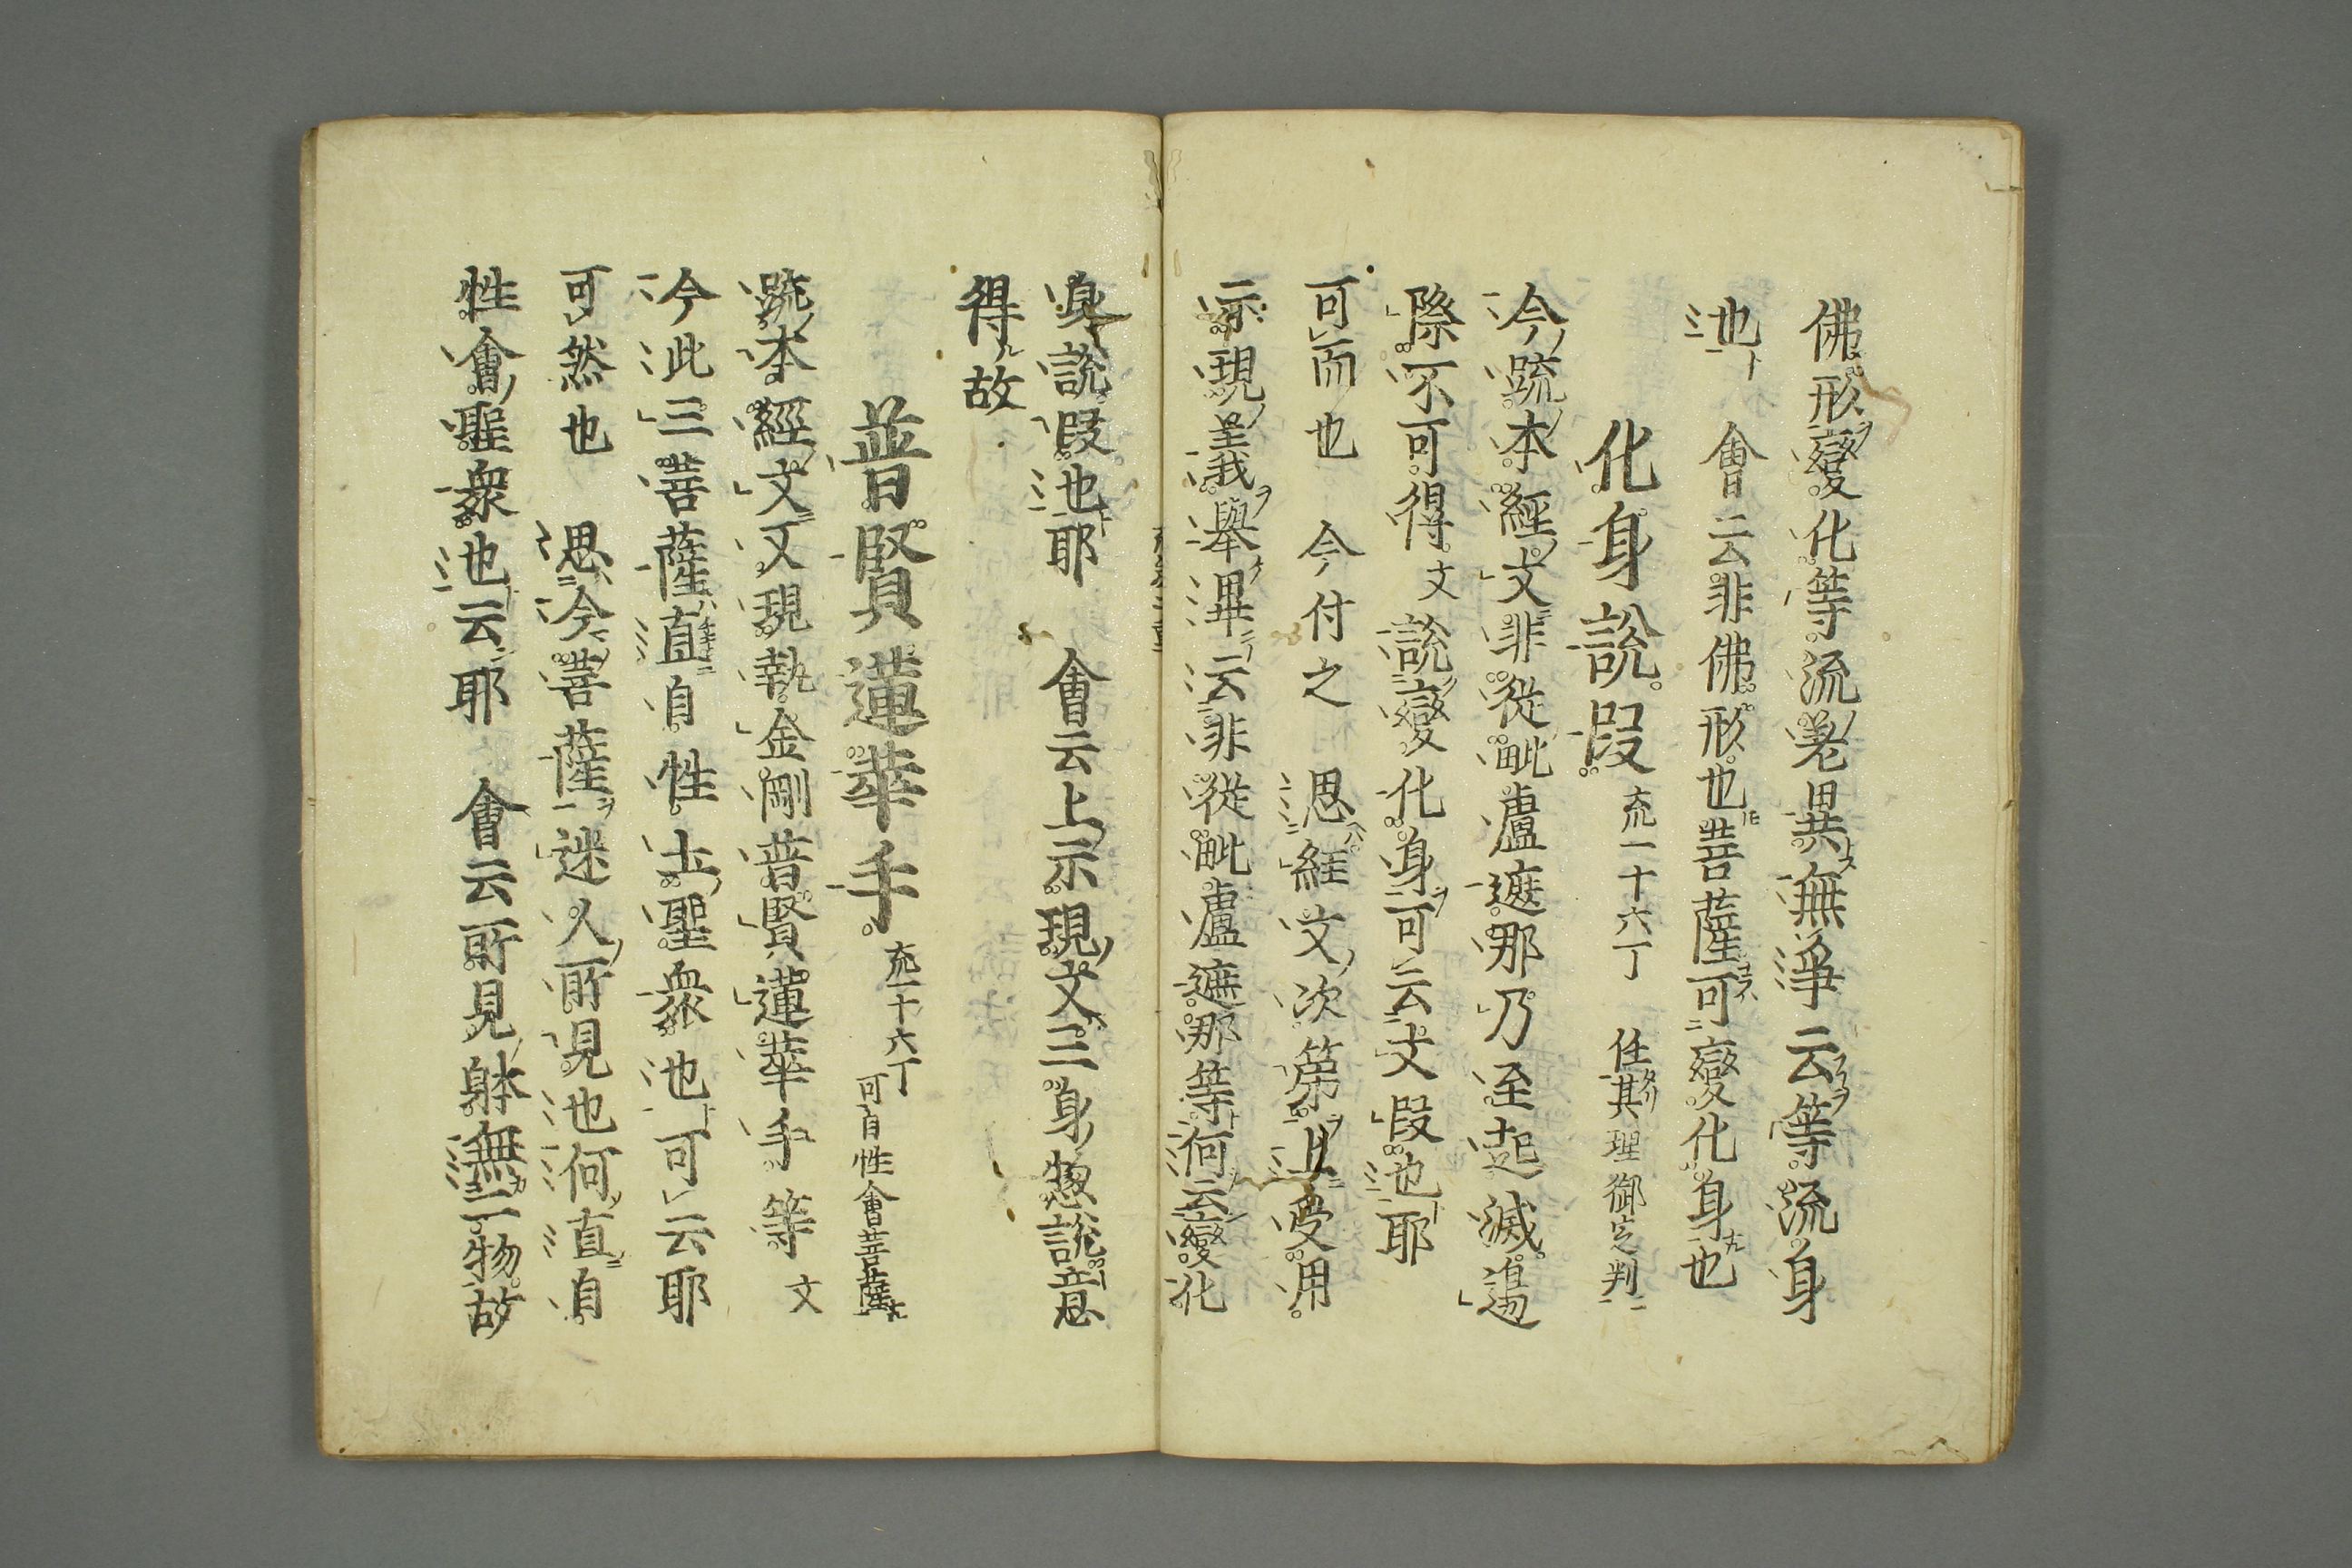 佛形變化等流差異無諍云等流身
也　會云非佛形也菩薩可變化身也
化身說段 六十六丁　任其理御定判
今疏本經文非從毗盧遮那乃至起滅邊
際不可得文說變化身可云文段也耶
可而也　今付之　思經文次第上受用
示現是我舉畢云非從毗盧遮那等何云變化
身說段也耶　會云上示現文三身惣說意
得故
普賢蓮華手 六十六丁 可自性會菩薩
疏本經文又現執金剛普賢蓮華手等文
今此三菩薩直自性土聖衆也可云耶
可然也　思今菩薩迷人所見也何直自
性會聖衆也云耶　會云所見躰無二物故